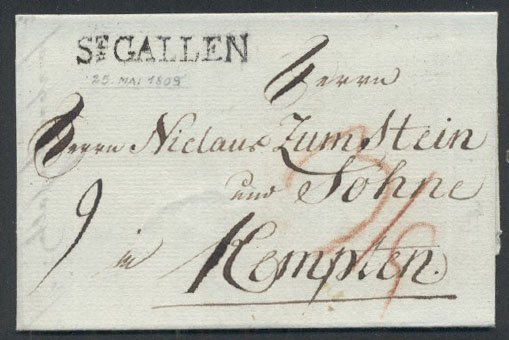 ST GALLEN
25. MAI 1809
Herrn
Herrn Niclaus Zumstein
und Söhne
9 in Kempten.